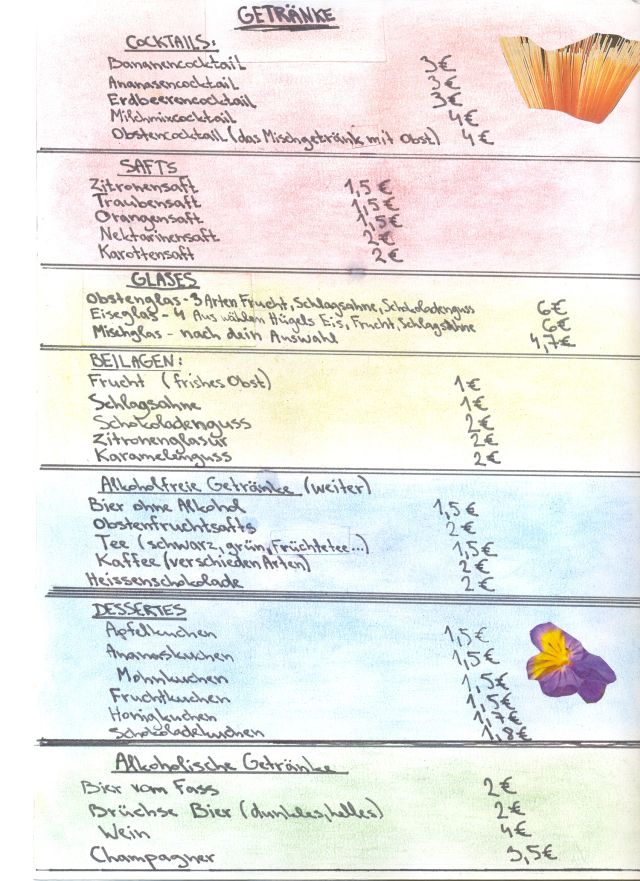 GETRÄNKE
COCKTAILS:
Bananencocktail 3€
Ananasencocktail 3€
Erdbeerencocktail 3€
Milchmixcocktail 4€
Obstencocktail (das Mischgetränk mit Obst) 4€
SAFTS
Zitronensaft 1,5€
Traubensaft 1,5€
Orangensaft 1,5€
Nektarinensaft 2€
Karottensaft 2€
GLASES
Obstenglas - 3 Arten Frucht, Schlagsahne, Schokoladenguss 6€
Eiseglas - 4 Aus wählen Hügels Eis, Frucht, Schlagsahne 6€
Mischglas - nach dein Auswahl 4,7€
BEILAGEN:
Frucht (frishes Obst) 1€
Schlagsahne 1€
Schokoladenguss 2€
Zitronenglasur 2€
Karamelenguss 2€
Alkoholfreie Getränke (weiter)
Bier ohne Alkohol 1,5€
Obstenfruchtsafts 2€
Tee (schwarz, grün, Früchtetee...) 1,5€
Kaffee (verschieden Arten) 2€
Heissenschokolade 2€
DESSERTES
Apfelkuchen 1,5€
Ananaskuchen 1,5€
Mohnkuchen 1,5€
Fruchtkuchen 1,5€
Honigkuchen 1,7€
Schokoladekuchen 1,8€
Alkoholische Getränke
Bier vom Fass 2€
Brüchse Bier (dunkles, helles) 2€
Wein 4€
Champagner 3,5€